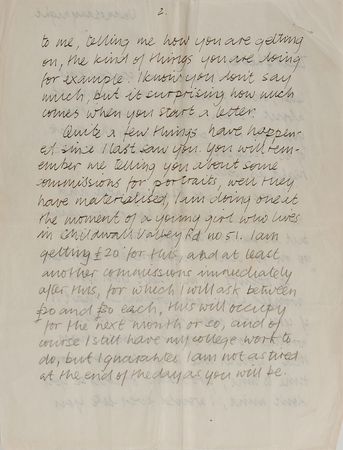 2.
to me, telling me how you are getting
on, the kind of things you are doing
for example. I know you dont say
much, but it surprising how much
comes when you start a letter.
Quite a few things have happen-
ed since I last saw you. You will rem-
ember me telling you about some
commissions for portraits, well they
have materialised, I am doing one at
the moment of a young girl who lives
in Childwall Valley Rd no 51. I am
getting £20 for this, and at least
another commissions immediately
after this, for which I will ask between
and each, this will occupy
for the next month or so, and of
course I still have my college work to
do, but I guarantee I am not as tired
at the end of the day as you will be.